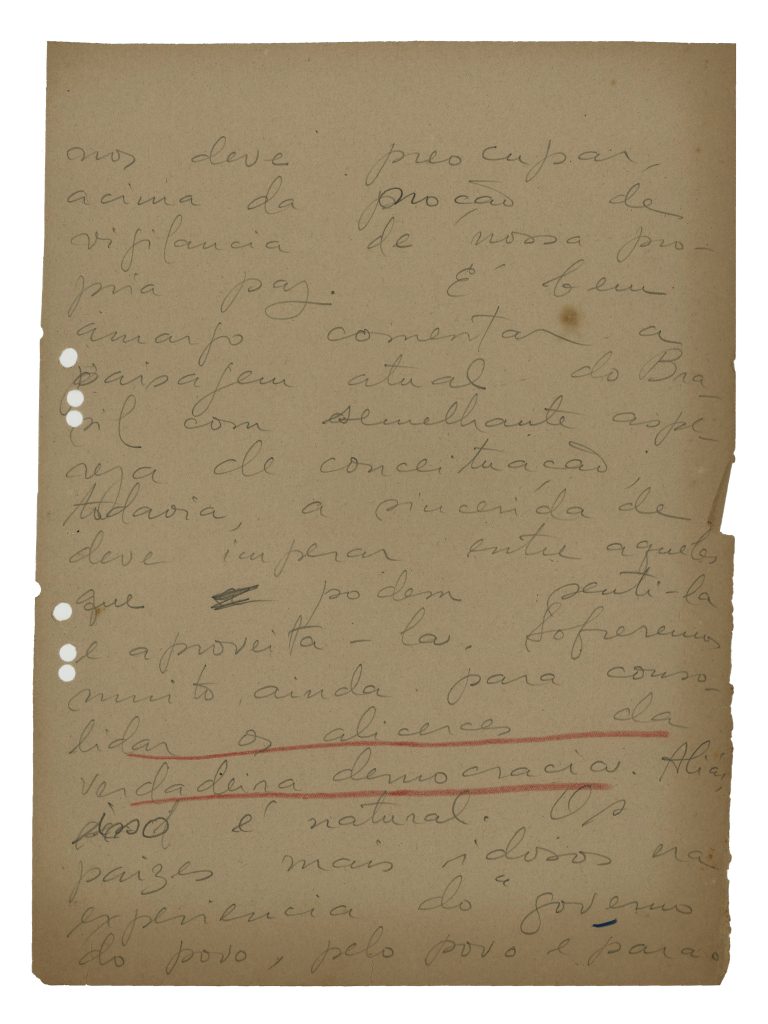 nos deve preocupar,
acima da noção de
vigilancia de nossa pro-
pria paz. É bem
amargo comentar a
paisagem atual do Bra-
sil com semelhante aspe-
reza de conceituação,
todavia, a sinceridade
deve imperar entre aqueles
que podem senti-la
e aproveita-la. Sofreremos
muito ainda para conso-
lidar os alicerces da
verdadeira democracia. Aliás,
isso é natural. Os
paizes mais idosos na
experiencia do "governo
do povo, pelo povo e para o